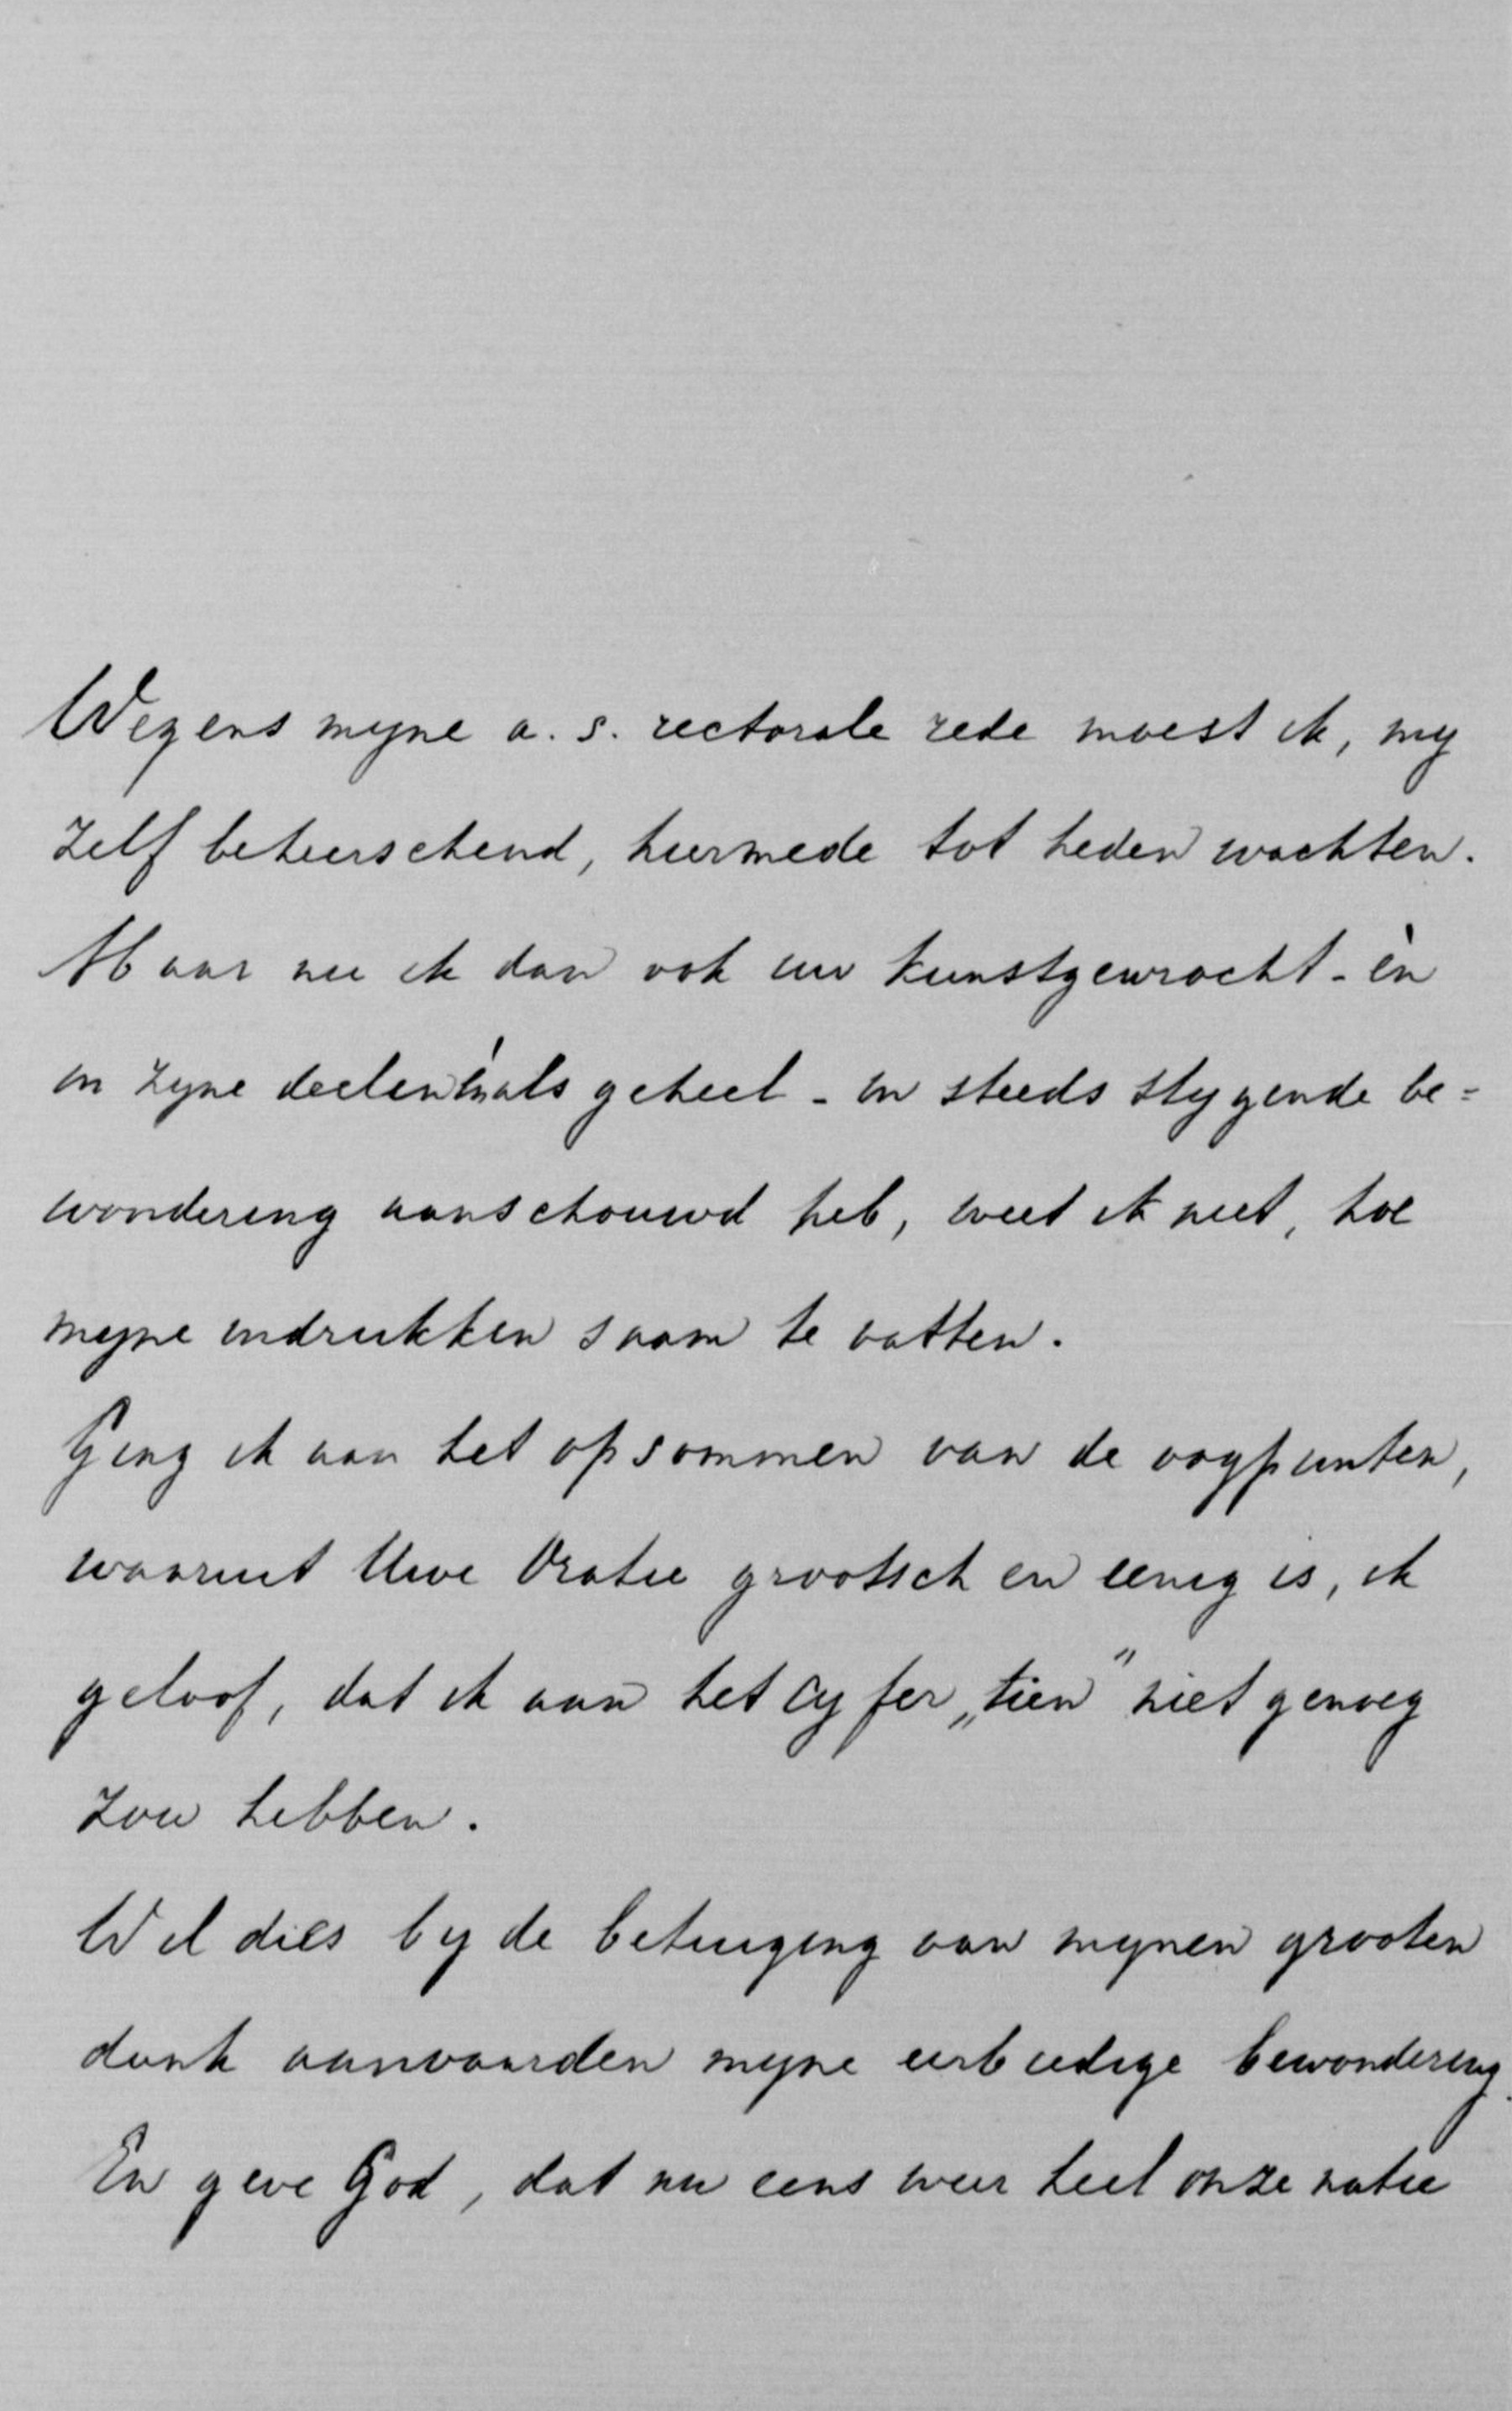 Wegens myne a. s. rectorale rede moest ik, my
zelf beheerschend, hiermede tot heden wachten.
Maar nu ik dan ook uw kunstgewrocht - èn
in zyne deelen èn als geheel - in steeds stygende be=
wondering aanschouwd heb, weet ik niet, hoe
myne indrukken saam te vatten.
Ging ik aan het opsommen van de oogpunten,
waaruit Uwe Oratie grootsch en eenig is, ik
geloof, dat ik aan het cyfer „tien" niet genoeg
zou hebben.
Wil dies by de betuiging van mynen grooten
dank aanvaarden myne eerbiedige bewondering.
En geve God, dat nu eens weer heel onze natie